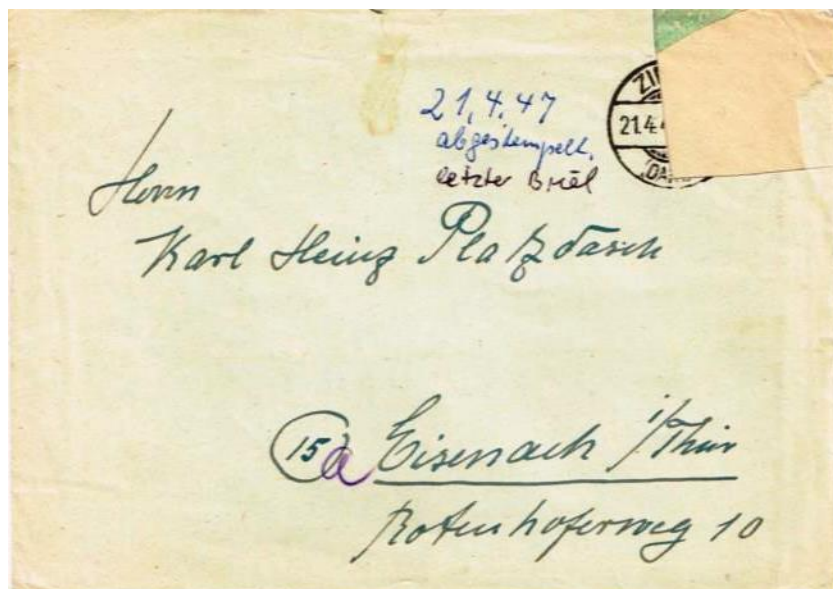 21.4.47
abgestempelt.
letzter Brief
ZI
21.4.4
(DA
Herrn
Karl Heinz Platzdasch
15 a Eisenach i/Thür
Rotenhoferweg 10